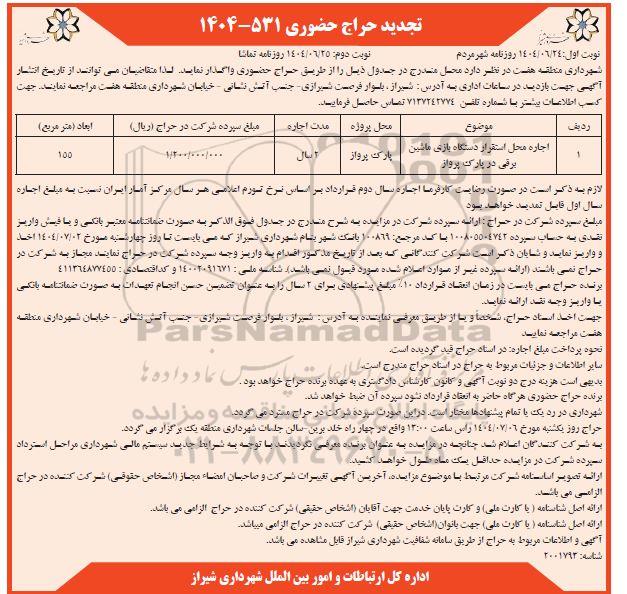 تجدید حراج حضوری ۵۳۱-۱۴۰۴
نوبت اول: ۱۴۰۴/۰۶/۲۴ روزنامه شهرمردم نوبت دوم: ۱۴۰۴/۰۶/۲۵ روزنامه تماشا
شهرداری منطقه هفت در نظر دارد محل مندرج در جدول ذیل را از طریق حراج حضوری واگذار نماید. لذا متقاضیان می توانند از تاریخ انتشار
آگهی جهت بازدید در ساعات اداری به آدرس: شیراز، بلوار فرصت شیرازی- جنب آتش نشانی - خیابان شهرداری منطقه هفت مراجعه نمایند. جهت
کسب اطلاعات بیشتر با شماره تلفن ۷۱۳۷۲۴۲۷۷۴ تماس حاصل فرمایید.
ردیف موضوع محل پروژه مدت اجاره مبلغ سپرده شرکت در حراج (ریال) ابعاد (متر مربع)
۱ اجاره محل استقرار دستگاه بازی ماشین برقی در پارک پرواز پارک پرواز ۲ سال ۱/۲۰۰/۰۰۰/۰۰۰ ۱۵۵
لازم به ذکر است در صورت رضایت کارفرما اجاره سال دوم قرارداد بر اساس نرخ تورم اعلامی هر سال مرکز آمار ایران نسبت به مبلغ اجاره
سال اول قابل تمدید خواهد بود
مبلغ سپرده شرکت در حراج: ارائه سپرده شرکت در مزایده به شرح مندرج در جدول فوق الذکر به صورت ضمانتنامه معتبر بانکی و یا فیش واریز
نقدی به حساب سپرده ۱۰۰۸۰۵۵۰۴۷۴۲ با کد مرجع: ۱۰۰۸۶۹ بانک شهر بنام شهرداری شیراز که می بایست تا روز چهارشنبه مورخ ۱۴۰۴/۰۷/۰۲ اخذ
و واریز نماید و شایان ذکر است شرکت کنندگانی که بعد از تاریخ مذکور اقدام به واریز وجه سپرده شرکت در حراج نمایند مجاز به شرکت در
حراج نمی باشند (ارائه سپرده غیر از موارد اعلام شده مورد قبول نمی باشد). شناسه ملی: ۱۴۰۰۲۰۹۱۶۷۱ و کداقتصادی: ۴۱۱۳۶۴۸۷۷۴۵۵
برنده حراج می بایست در زمان انعقاد قرارداد ۱۰٪ مبلغ پیشنهادی برای ۲ سال را به عنوان تضمین حسن انجام تعهدات به صورت ضمانتنامه بانکی
یا واریز وجه نقد ارائه نماید.
جهت اخذ اسناد حراج، شخصاً و یا از طریق معرفی نماینده به آدرس: شیراز، بلوار فرصت شیرازی- جنب آتش نشانی - خیابان شهرداری منطقه
هفت مراجعه نمایید
نحوه پرداخت مبلغ اجاره: در اسناد حراج قید گردیده است.
سایر اطلاعات و جزئیات مربوط به حراج در اسناد حراج مندرج است.
بدیهی است هزینه درج دو نوبت آگهی و کانون کارشناس دادگستری به عهده برنده حراج خواهد بود.
برنده حراج حضوری هرگاه حاضر به انعقاد قرارداد نشود سپرده آن ضبط خواهد شد.
شهرداری در رد یک یا تمام پیشنهادها مختار است. دراین صورت سپرده شرکت در حراج مسترد می گردد.
حراج روز یکشنبه مورخ ۱۴۰۴/۰۷/۰۶ راس ساعت ۱۳:۰۰ واقع در چهار راه خلد برین-سالن جلسات شهرداری منطقه یک برگزار می گردد.
به شرکت کنندگان اعلام شد چنانچه در مزایده به عنوان برنده معرفی نگردیدند با توجه به شرایط جدید سیستم مالی شهرداری مراحل استرداد
سپرده شرکت در مزایده حداقل یک ماه طول خواهد کشید.
ارائه تصویر اساسنامه شرکت مرتبط با موضوع مزایده، آخرین آگهی تغییرات شرکت و صاحبان امضاء مجاز (اشخاص حقوقی) شرکت کننده در حراج
الزامی می باشد.
ارائه اصل شناسنامه (یا کارت ملی) و کارت پایان خدمت جهت آقایان (اشخاص حقیقی) شرکت کننده در حراج الزامی می باشد.
ارائه اصل شناسنامه (یا کارت ملی) جهت بانوان(اشخاص حقیقی) شرکت کننده در حراج الزامی میباشد.
آگهی و اطلاعات مربوط به حراج از طریق سامانه شفافیت شهرداری شیراز قابل مشاهده می باشد.
شناسه: ۲۰۰۱۷۹۳
اداره کل ارتباطات و امور بین الملل شهرداری شیراز
ParsNamadData